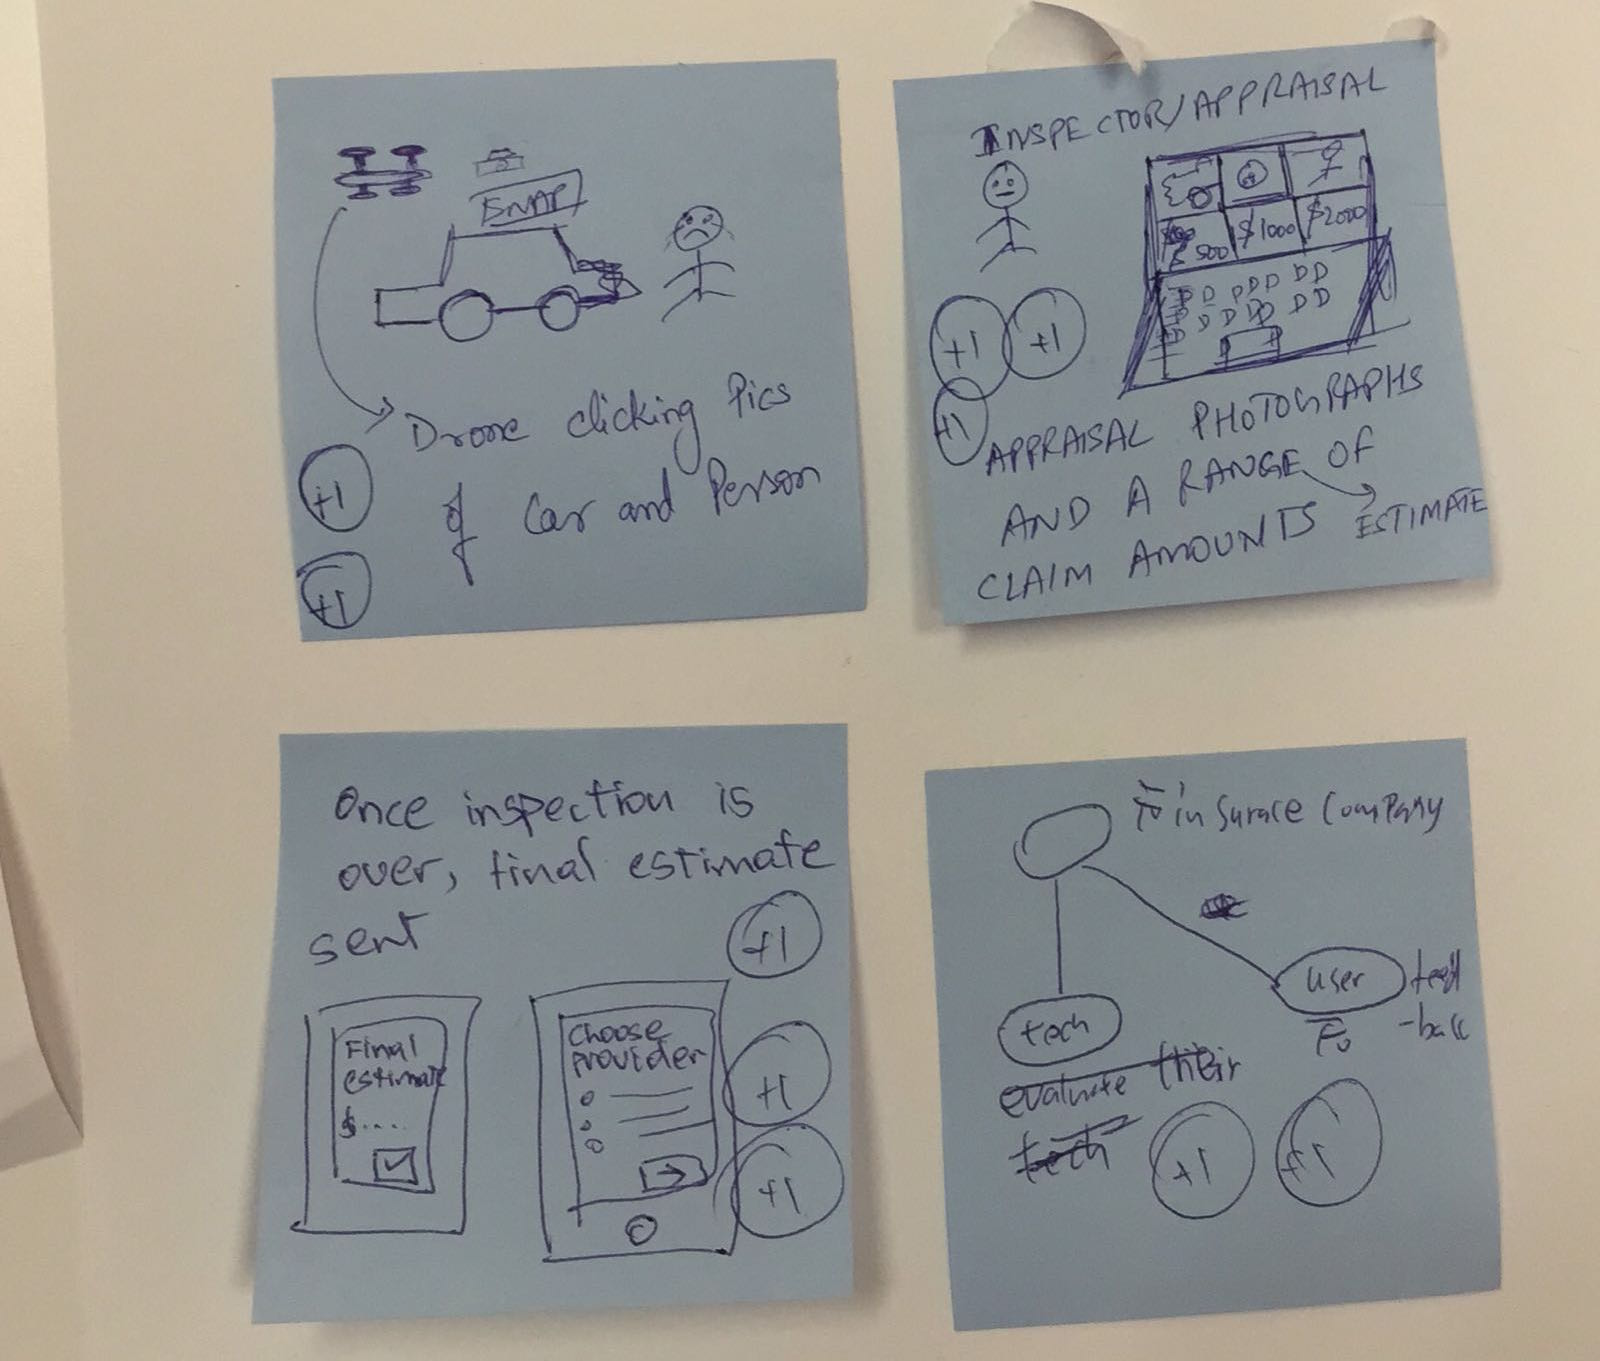 SNAP
Drone clicking Pics
of Car and Person
+1
+1
INSPECTOR/APPRAISAL
500 $1000 $2000
D D D D D D D
D D D D D D D
+1 +1
+1
APPRAISAL PHOTOGRAPHS
AND A RANGE OF
CLAIM AMOUNTS ESTIMATE
Once inspection is
over, final estimate
sent
+1
Final
estimate
$....
Choose
provider
+1
+1
insurace company
user
tech
evaluate their
tech
+1 +1